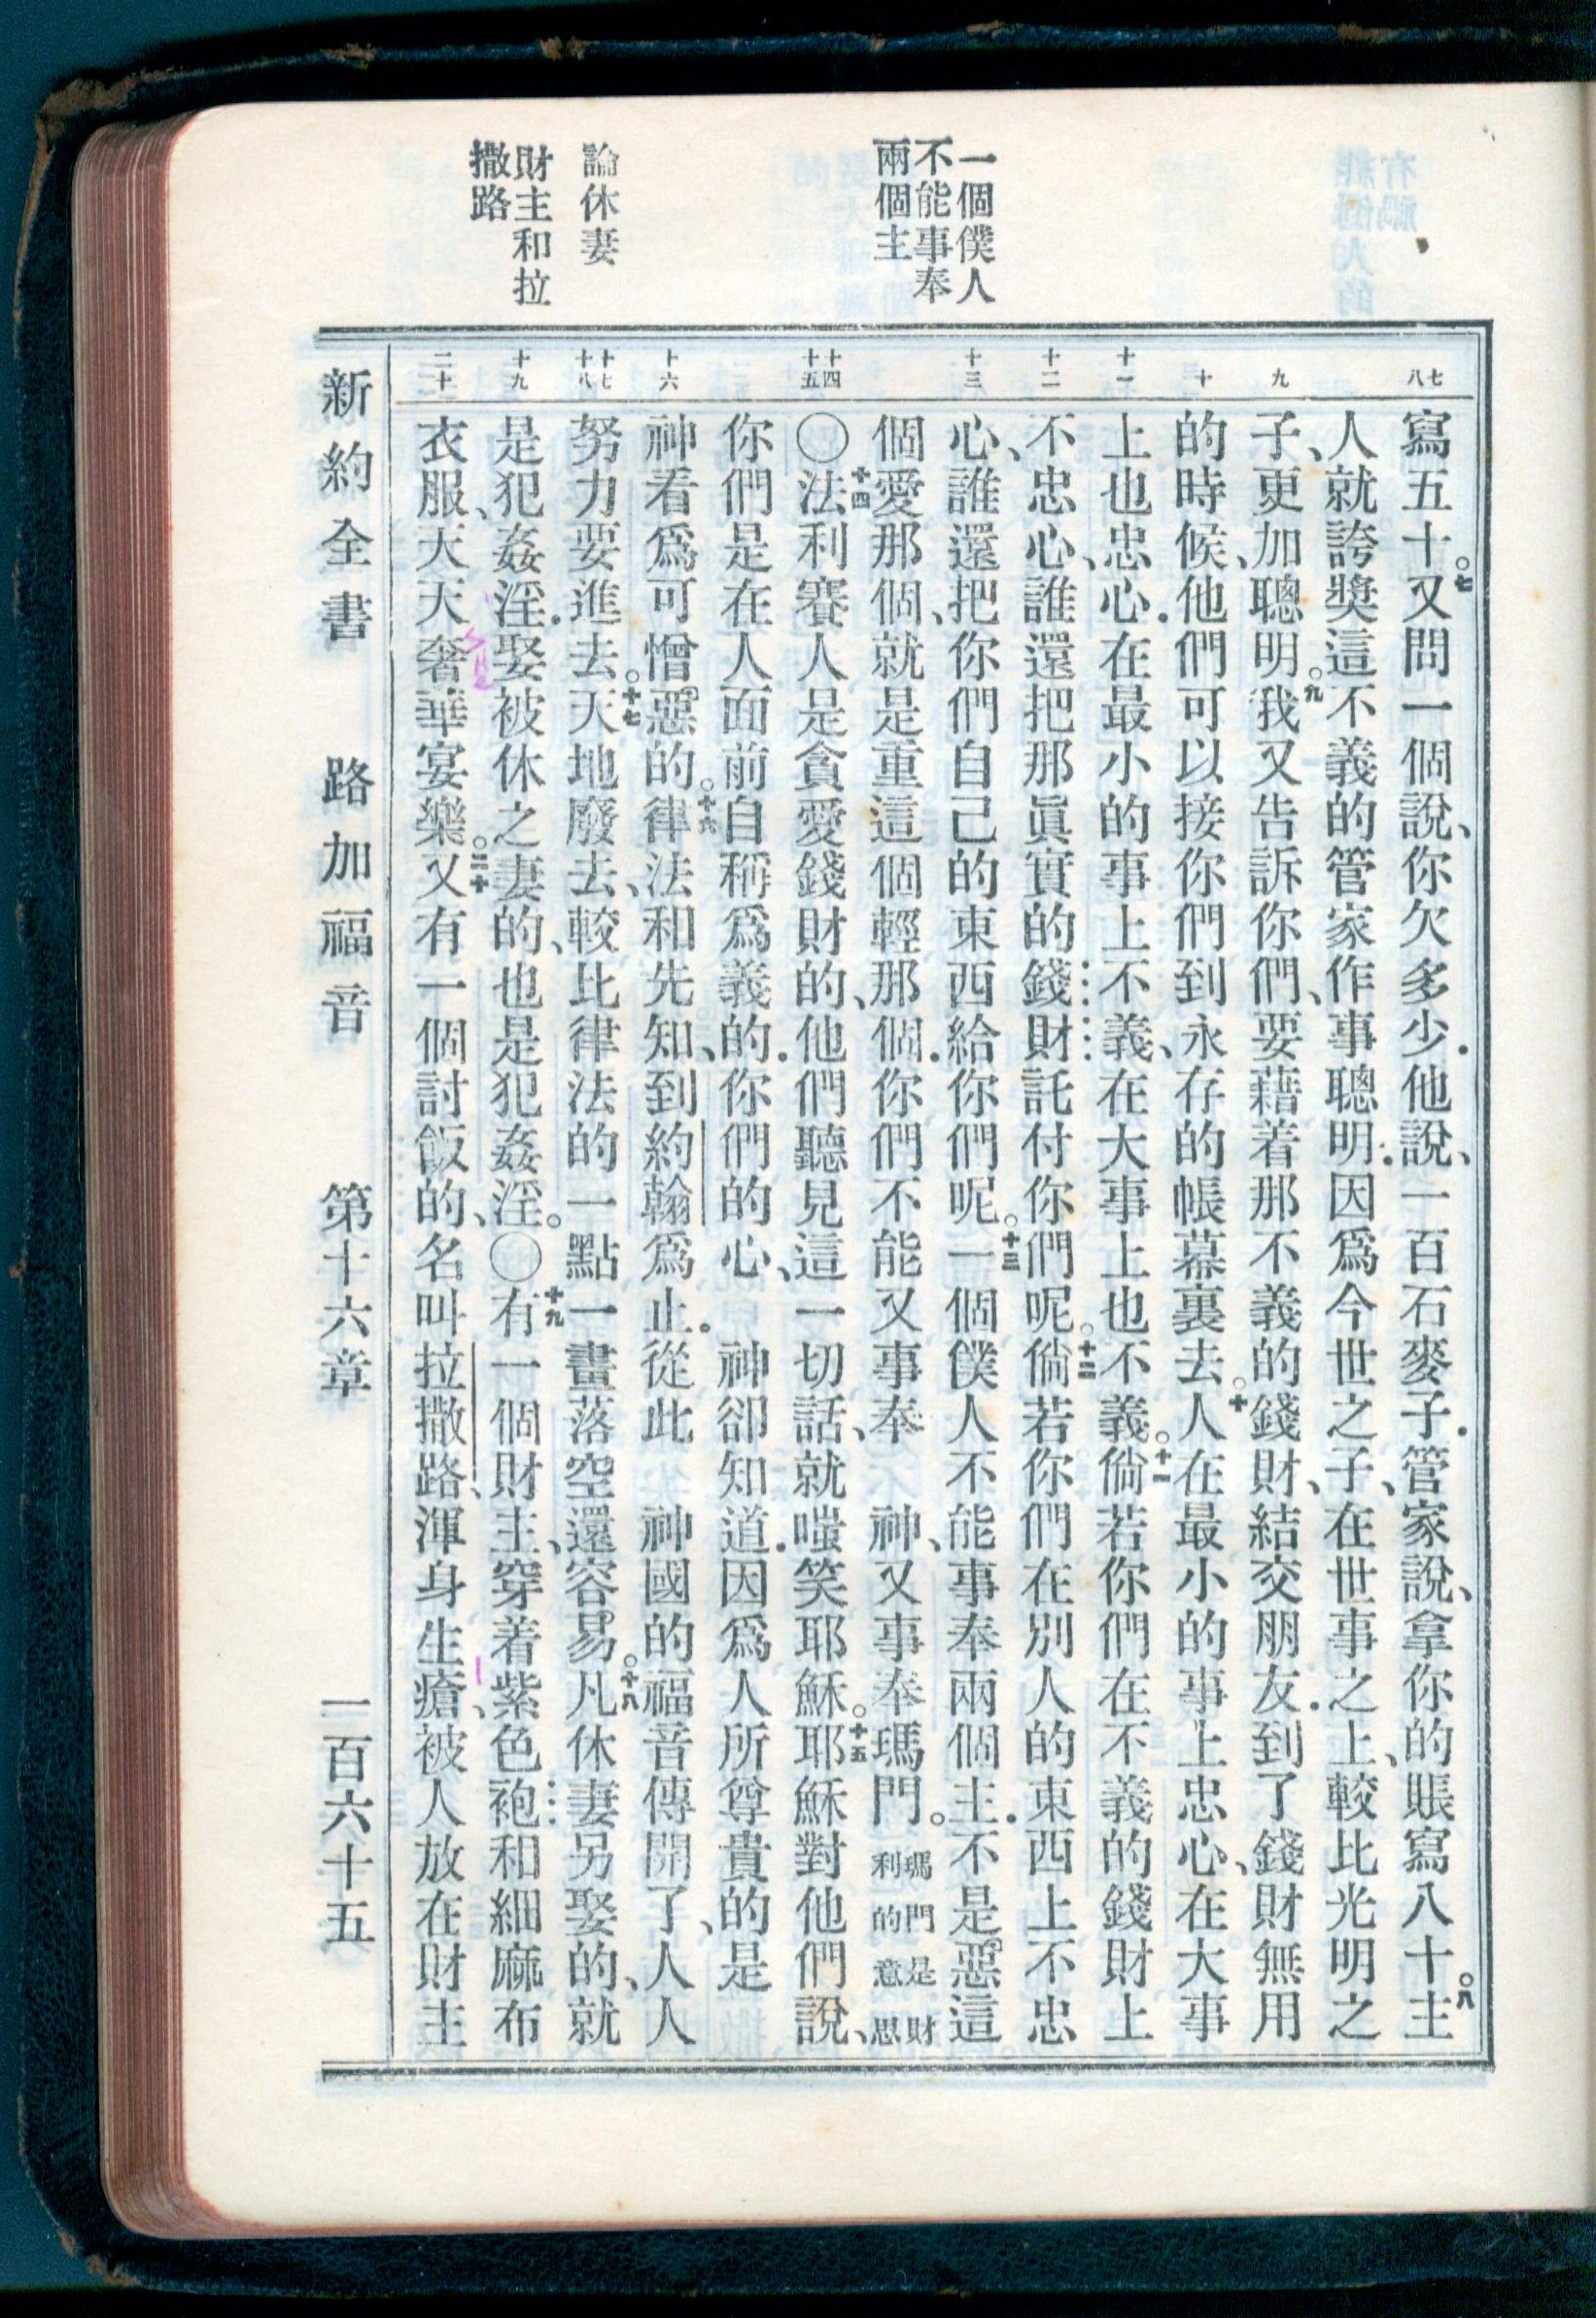 一個僕人
不能事奉
兩個主
論休妻
財主和拉
撒路
七 八 九 十 十一 十二 十三 十四 十五 十六 十七 十八 十九 二十
寫五十。七又問一個說、你欠多少．他說、一百石麥子．管家說、拿你的賬寫八十。八主
人就誇獎這不義的管家作事聰明．因爲今世之子、在世事之上、較比光明之
子、更加聰明。九我又告訴你們、要藉着那不義的錢財、結交朋友．到了錢財無用
的時候、他們可以接你們到永存的帳幕裏去。十人在最小的事上忠心、在大事
上也忠心．在最小的事上不義、在大事上也不義。十一倘若你們在不義的錢財上
不忠心、誰還把那眞實的錢財託付你們呢。十二倘若你們在別人的東西上不忠
心、誰還把你們自己的東西給你們呢。十三一個僕人不能事奉兩個主．不是惡這
個愛那個、就是重這個輕那個．你們不能又事奉　神、又事奉瑪門。瑪門是財利的意思
〇十四法利賽人是貪愛錢財的、他們聽見這一切話、就嗤笑耶穌。十五耶穌對他們說、
你們是在人面前自稱爲義的．你們的心、　神卻知道．因爲人所尊貴的是
神看爲可憎惡的。十六律法和先知、到約翰爲止．從此　神國的福音傳開了、人人
努力要進去。十七天地廢去、較比律法的一點一畫落空還容易。十八凡休妻另娶的、就
是犯姦淫．娶被休之妻的、也是犯姦淫。〇十九有一個財主、穿着紫色袍和細麻布
衣服、天天奢華宴樂。二十又有一個討飯的、名叫拉撒路、渾身生瘡、被人放在財主
新約全書　路加福音　第十六章　一百六十五